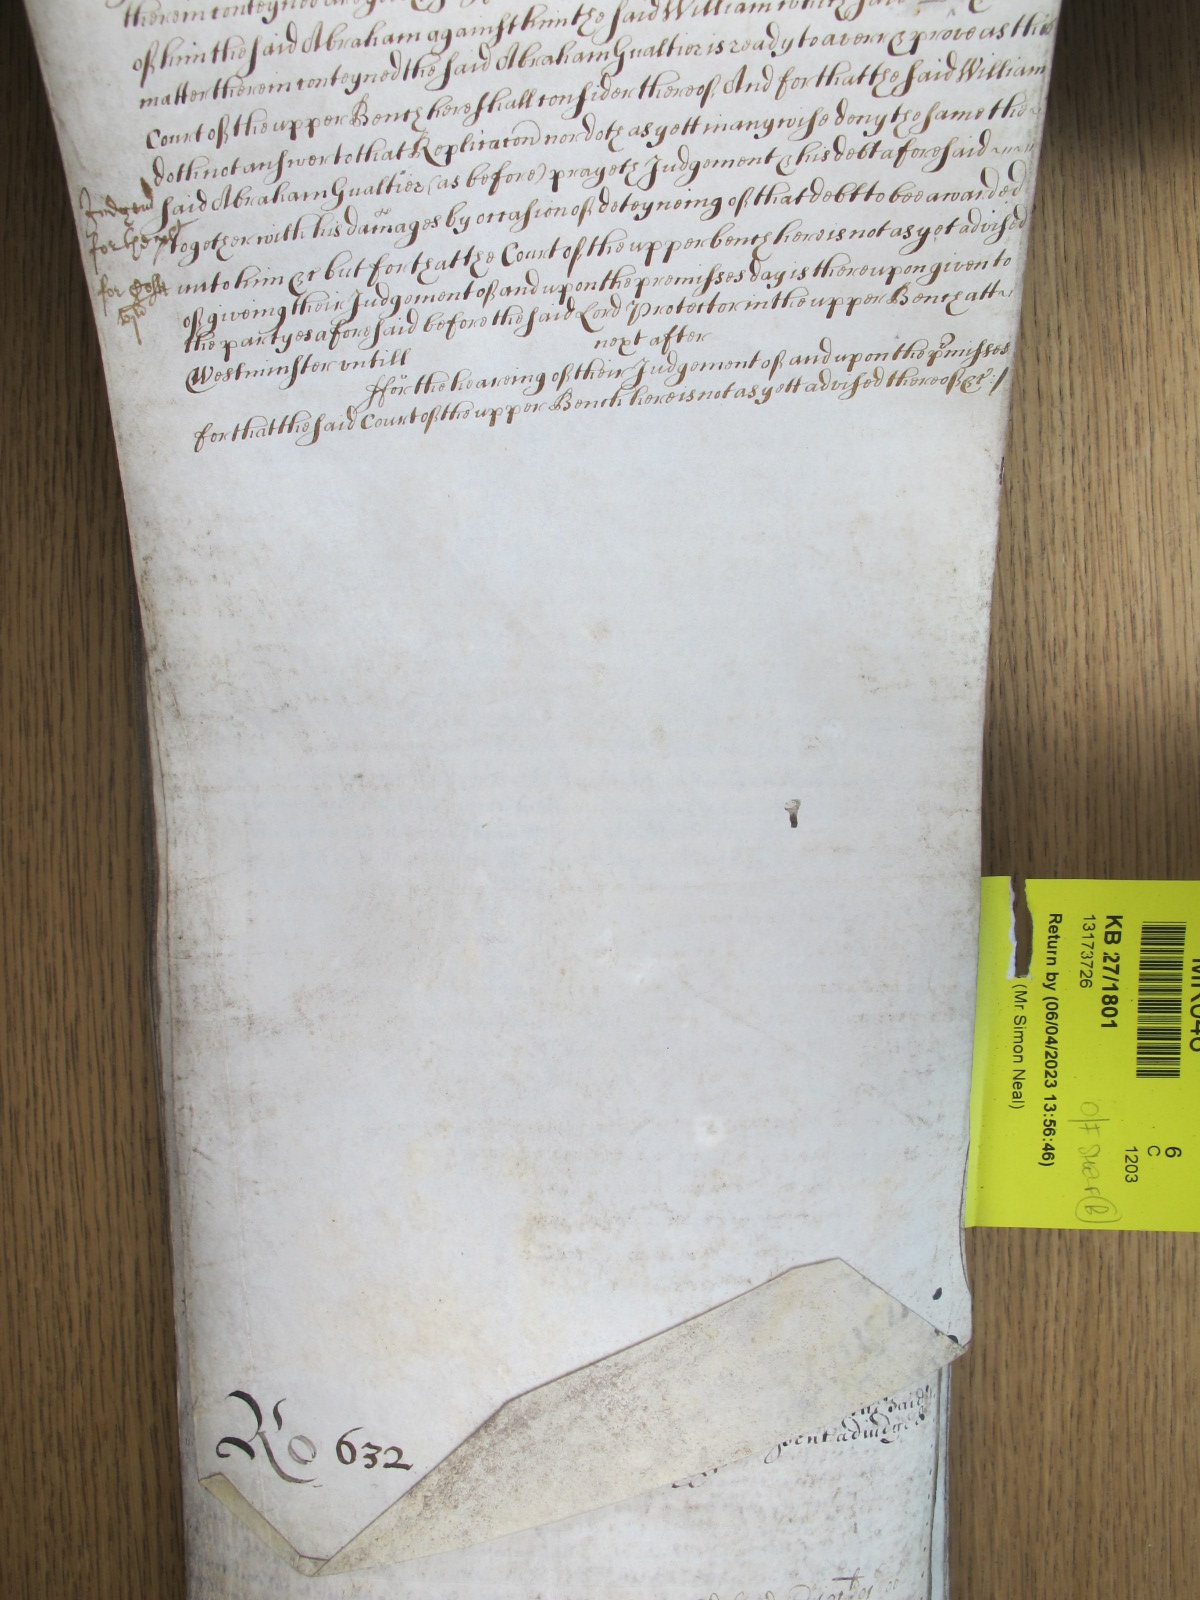 therein conteyned are
of him the said Abraham against him the said William which said
matter therein conteyned the said Abraham Gualtier is ready to averr & prove as this
Court of the upper Bench here shall consider thereof, And for that the said William
doth not answer to that Replicacon nor doth as yett in any wise deny the same the
said Abraham Gualtier (as before) prayeth Judgement & his debt aforesaid
together with his damages by occasion of deteyneing of that debt to bee awarded
unto him &c but for that the Court of the upper bench here is not as yet advised
of giveing their Judgement of and upon the premisses day is thereupon given to
the partyes aforesaid before the said Lord Protector in the upper Bench att
Westminster untill next after
ffor the heareing of their Judgement of and upon the pmisses
for that the said Court of the upper Bench here is not as yett advised thereof &c:/
Judgent
for the
for
Ro 632
said
adjudged
KB 27/1801
13173726
Return by (06/04/2023 13:56:46)
(Mr Simon Neal)
6
C
1203